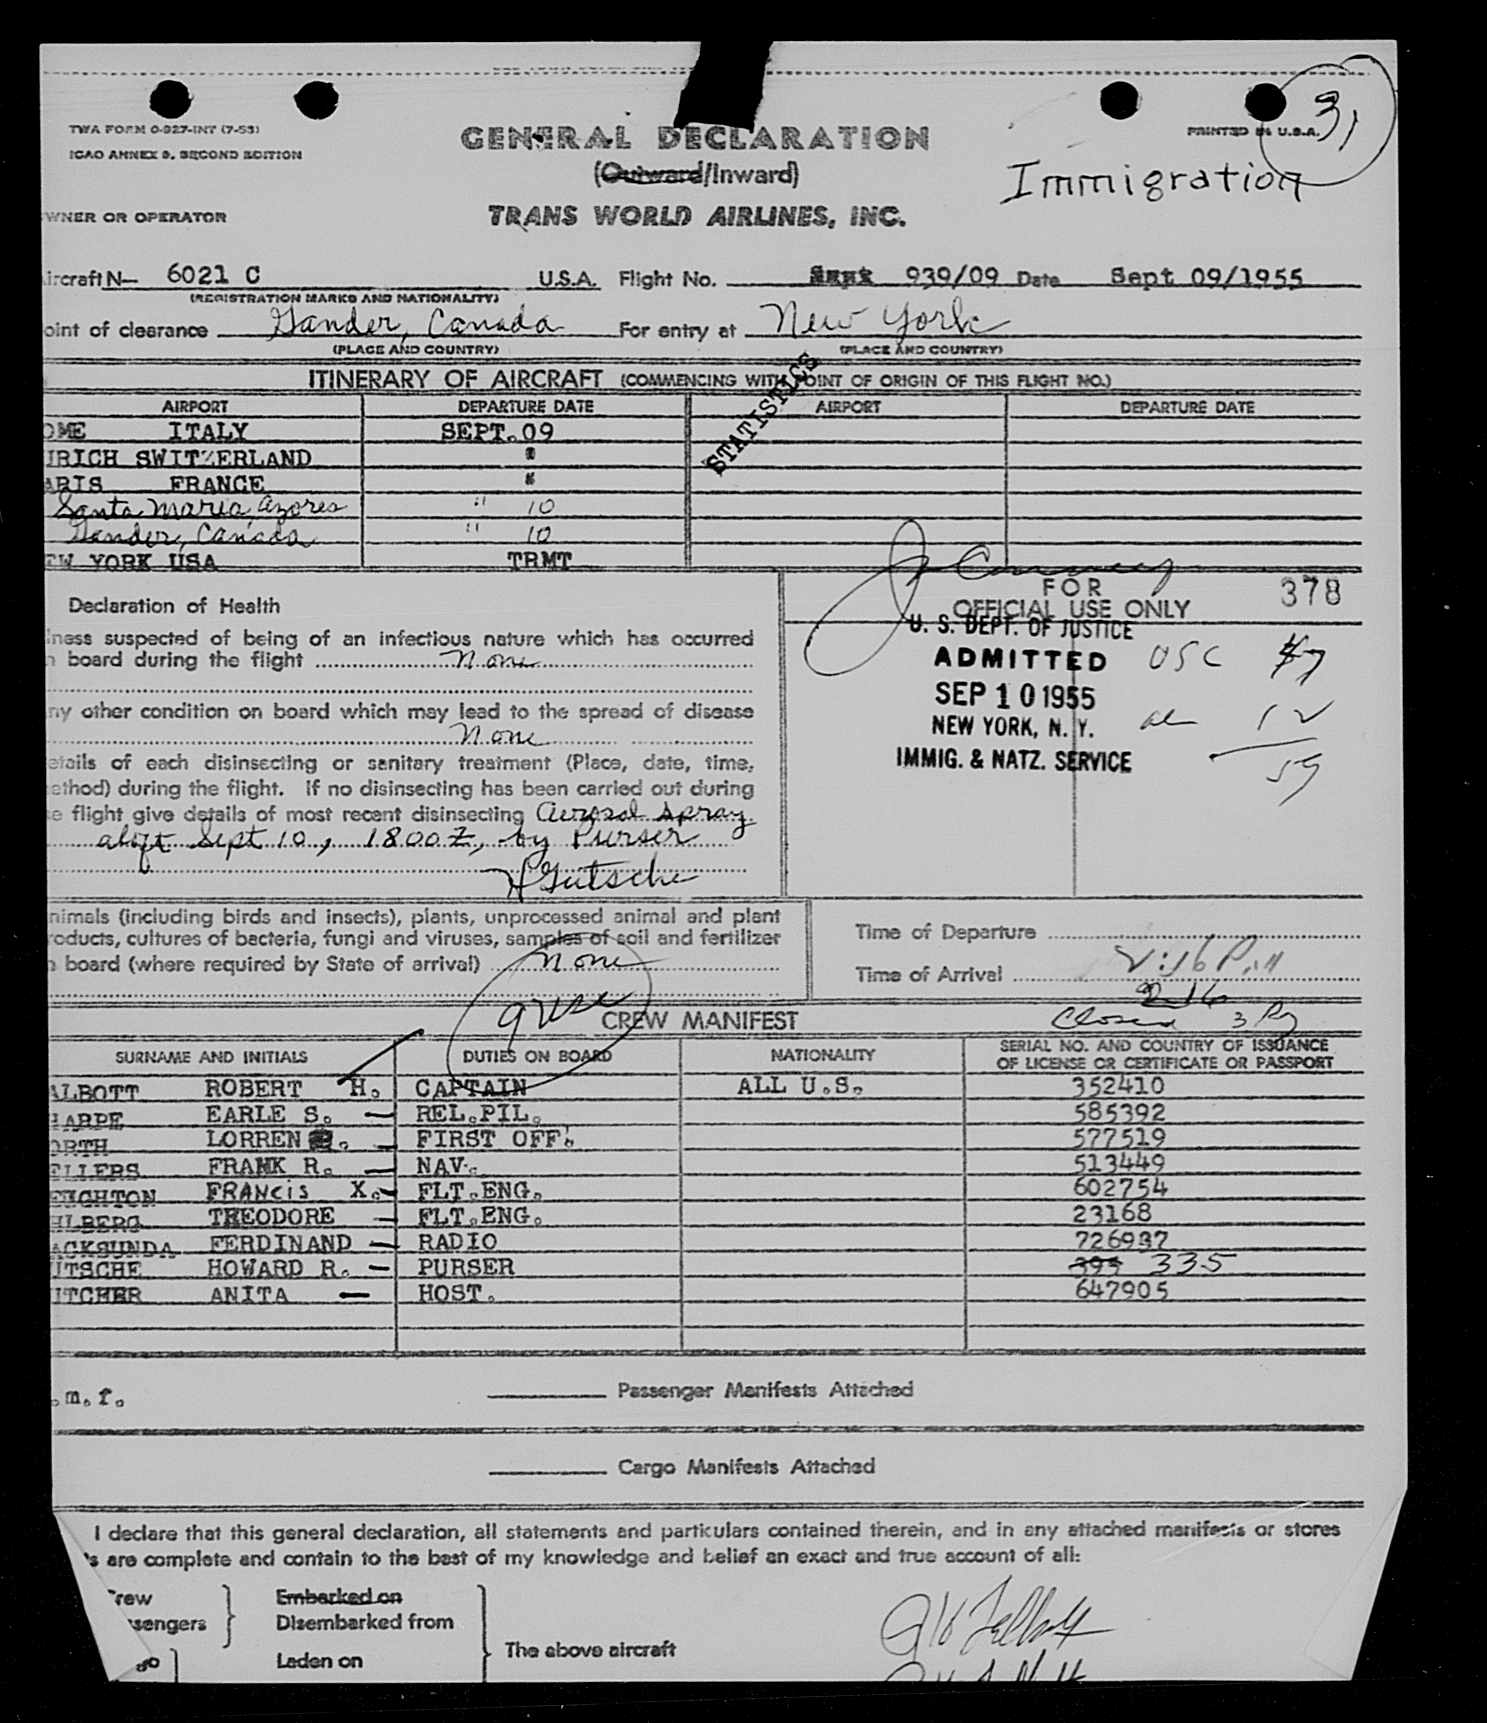 31
TWA FORM 0-927-INT (7-53)
PRINTED IN U.S.A.
ICAO ANNEX 9, SECOND EDITION
GENERAL DECLARATION
(Outward/Inward)
Immigration
WNER OR OPERATOR
TRANS WORLD AIRLINES, INC.
ircraft N— 6021 C U.S.A. Flight No. 939/09 Date Sept 09/1955
(REGISTRATION MARKS AND NATIONALITY)
oint of clearance Gander, Canada For entry at New York
(PLACE AND COUNTRY) (PLACE AND COUNTRY)
STATISTICS
ITINERARY OF AIRCRAFT (COMMENCING WITH POINT OF ORIGIN OF THIS FLIGHT NO.)
AIRPORT DEPARTURE DATE AIRPORT DEPARTURE DATE
OME ITALY SEPT.09
URICH SWITZERLAND "
ARIS FRANCE "
Santa Maria, Azores " 10
Gander, Canada " 10
EW YORK USA TRMT
FOR
OFFICIAL USE ONLY
378
U. S. DEPT. OF JUSTICE
ADMITTED
SEP 10 1955
NEW YORK, N. Y.
IMMIG. & NATZ. SERVICE
USC 47
al 12
59
Declaration of Health
lness suspected of being of an infectious nature which has occurred
n board during the flight None
ny other condition on board which may lead to the spread of disease
None
etails of each disinsecting or sanitary treatment (Place, date, time,
ethod) during the flight. If no disinsecting has been carried out during
e flight give details of most recent disinsecting Aerosol spray
aloft Sept 10, 1800Z, by Purser
H Gutsche
nimals (including birds and insects), plants, unprocessed animal and plant
roducts, cultures of bacteria, fungi and viruses, samples of soil and fertilizer
n board (where required by State of arrival) None
Time of Departure
Time of Arrival 2:16 P.M
2 16
Closed 3 Pg
CREW MANIFEST
SURNAME AND INITIALS DUTIES ON BOARD NATIONALITY SERIAL NO. AND COUNTRY OF ISSUANCE
OF LICENSE OR CERTIFICATE OR PASSPORT
ALBOTT ROBERT H. CAPTAIN ALL U.S. 352410
HARPE EARLE S. REL.PIL. 585392
ORTH LORREN . FIRST OFF. 577519
ELLERS FRANK R. NAV. 513449
EIGHTON FRANCIS X. FLT.ENG. 602754
HLBERG THEODORE FLT.ENG. 23168
ACKSUNDA FERDINAND RADIO 726937
UTSCHE HOWARD R. PURSER 393 335
UTCHER ANITA HOST. 647905
.m.f.
Passenger Manifests Attached
Cargo Manifests Attached
I declare that this general declaration, all statements and particulars contained therein, and in any attached manifests or stores
's are complete and contain to the best of my knowledge and belief an exact and true account of all:
Crew
ssengers
go
Embarked on
Disembarked from
Laden on
The above aircraft